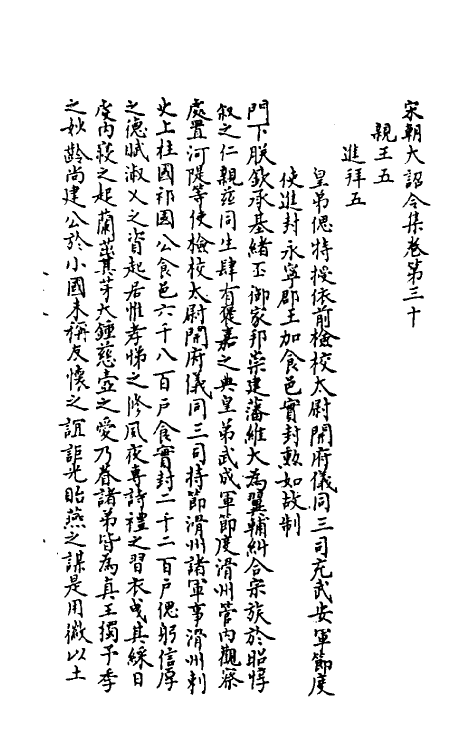 宋朝大詔令集卷第三十
親王五
進拜五
皇弟偲特授依前檢校太尉開府儀同三司充武安軍節度
使進封永寧郡王加食邑實封勲如故制
門下朕欽承基緒丕御家邦崇建藩維大為翼輔糾合宗族於昭惇
叙之仁親茲同生肆有褒嘉之典皇弟武成軍節度滑州管内觀察
處置河隄等使檢校太尉開府儀同三司持節滑州諸軍事滑州刺
史上柱國祁國公食邑六千八百戶食實封二千二百戶偲躬信厚
之德賦淑乂之資起居惟孝悌之修夙夜專詩禮之習衣曵其綵日
度内寢之起蘭茁其芽大鍾慈壼之愛乃眷諸弟皆為真王獨予季
之妙齡尚建公於小國未稱友懷之誼詎光貽燕之謀是用徹以土